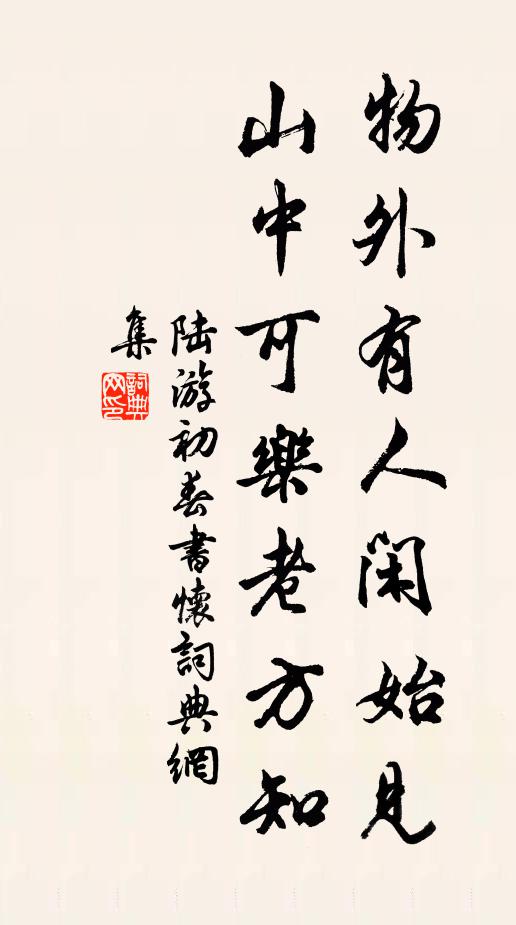 物外有人閑始見
山中可樂老方知
陸游初春書懷詞典網
集
詞典
网印